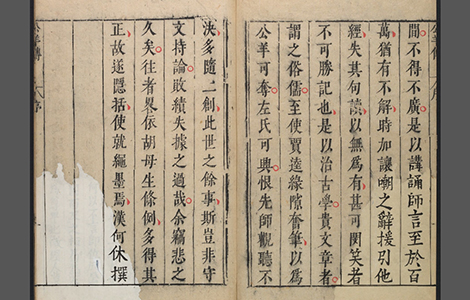 間不得不廣是以講誦師言至於百
萬猶有不解時加讓嘲之辭援引他
經失其句讀以無為有甚可閔笑者
不可勝記也是以治古學貴文章者
謂之俗儒至使賈逵緣隙奮筆以為
公羊可奪左氏可興恨先師觀聽不
決多隨二創此世之餘事斯豈非守
文持論敗績失據之過哉余竊悲之
久矣往者略依胡母生條例多得其
正故遂隱括使就繩墨焉漢何休撰